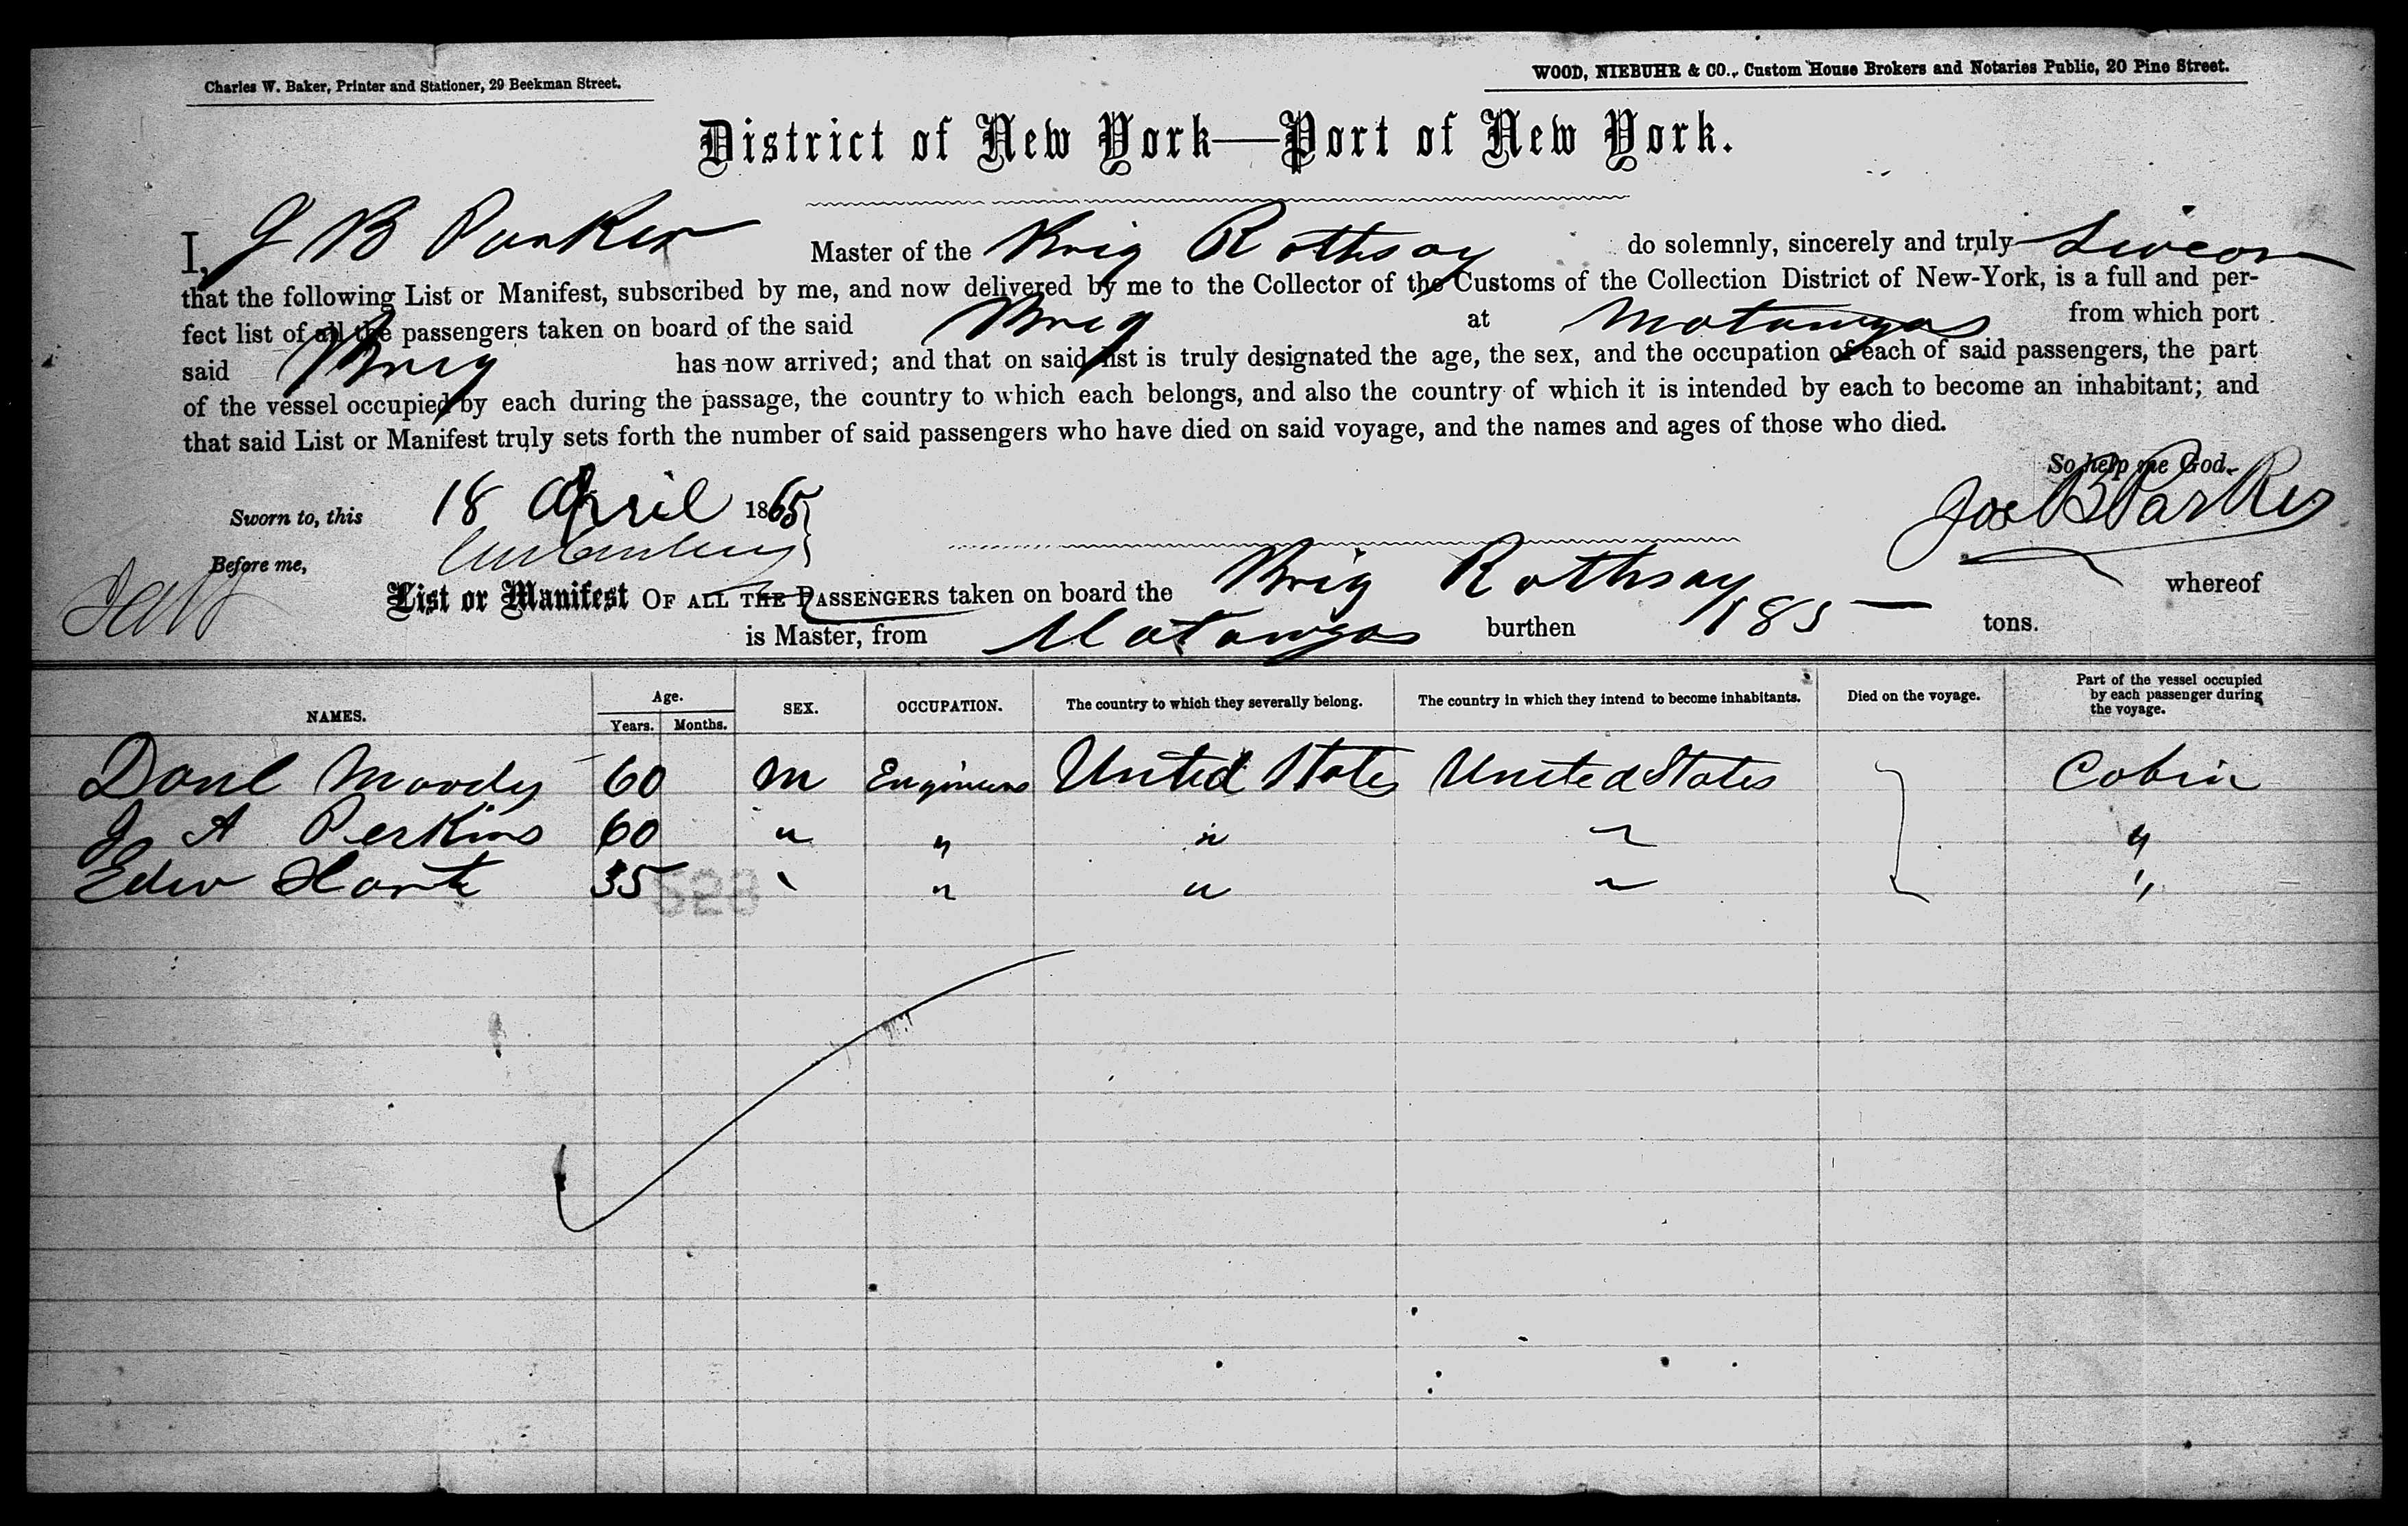 Charles W. Baker, Printer and Stationer, 29 Beekman Street.
WOOD, NIEBUHR & CO., Custom House Brokers and Notaries Public, 20 Pine Street.
District of New York—Port of New York.
I, J B Parker Master of the Brig Rothsay do solemnly, sincerely and truly Swear
that the following List or Manifest, subscribed by me, and now delivered by me to the Collector of the Customs of the Collection District of New-York, is a full and per-
fect list of all the passengers taken on board of the said Brig at Matanzas from which port
said Brig has now arrived; and that on said list is truly designated the age, the sex, and the occupation of each of said passengers, the part
of the vessel occupied by each during the passage, the country to which each belongs, and also the country of which it is intended by each to become an inhabitant; and
that said List or Manifest truly sets forth the number of said passengers who have died on said voyage, and the names and ages of those who died.
So help me God.
Sworn to, this 18 April 1865
Jos B Parker
Before me,
List or Manifest OF ALL THE PASSENGERS taken on board the Brig Rothsay whereof
is Master, from Matanzas burthen 185 tons.
NAMES. Age. Years. Months. SEX. OCCUPATION. The country to which they severally belong. The country in which they intend to become inhabitants. Died on the voyage. Part of the vessel occupied by each passenger during the voyage.
Danl Moody 60 M Engineers United States United States Cabin
J A Perkins 60 " " " " "
Edw Hart 35 " " " " "
528